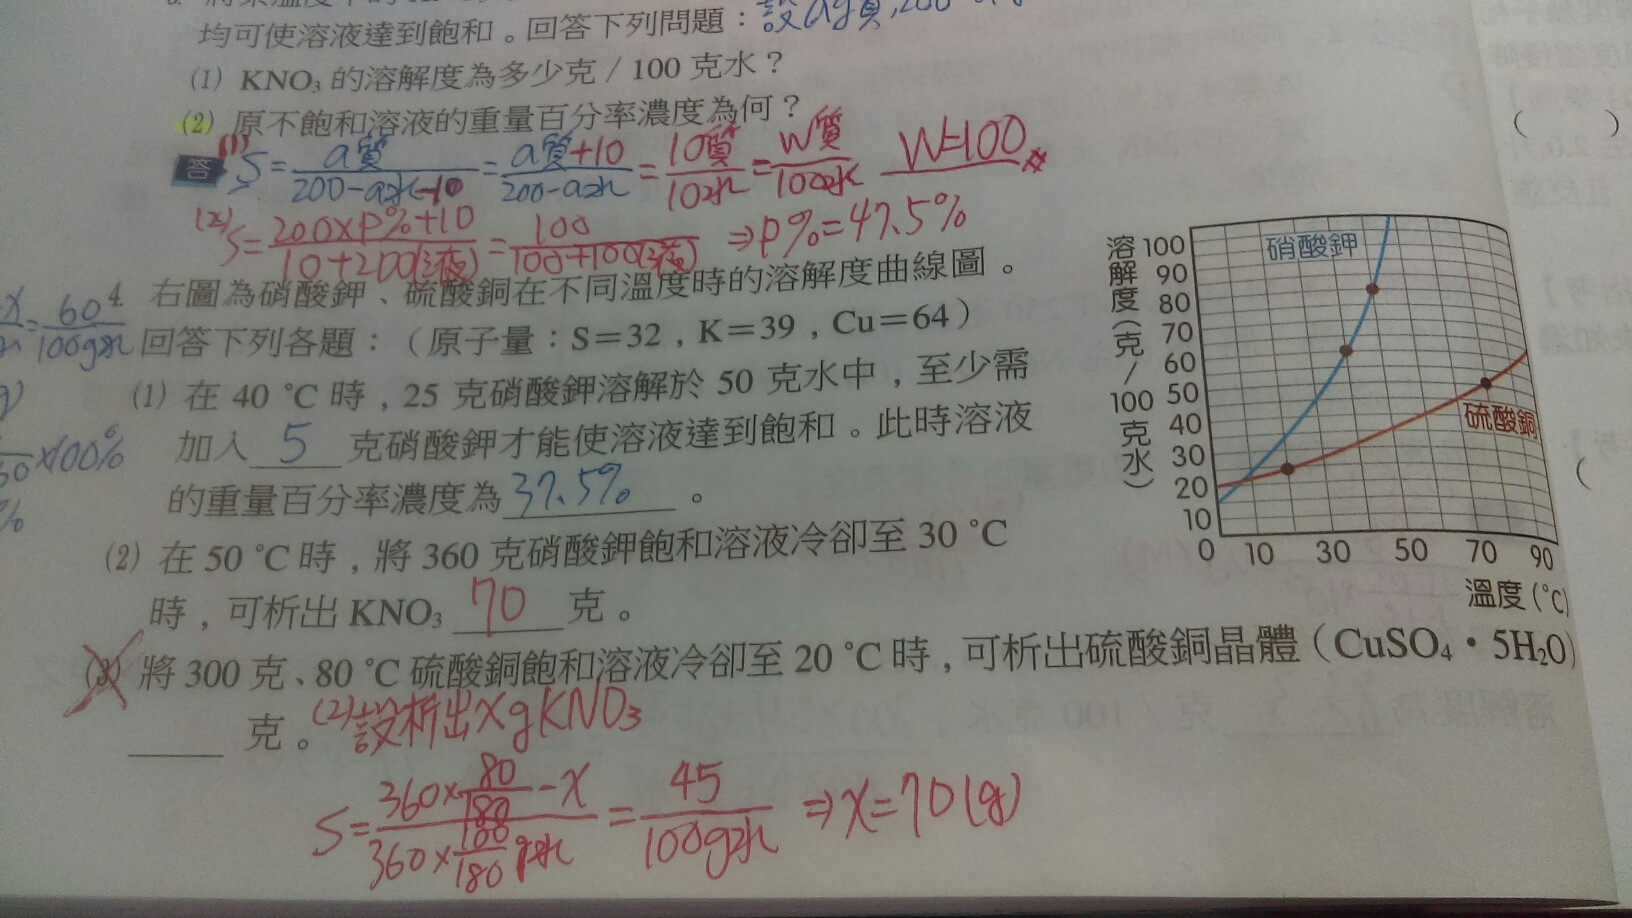 均可使溶液達到飽和。回答下列問題：設a g質,200-a
(1) KNO₃ 的溶解度為多少克／100 克水？
(2) 原不飽和溶液的重量百分率濃度為何？
答 (1) S=a質/200-a水-10=a質+10/200-a水=10質/10水=W質/100水 W=100
(2) S=200×P%+10/10+200(液)=100/100+100(液) ⇒P%=47.5%
4. 右圖為硝酸鉀、硫酸銅在不同溫度時的溶解度曲線圖。
回答下列各題：（原子量：S＝32，K＝39，Cu＝64）
=60/100g水
(1) 在 40 °C 時，25 克硝酸鉀溶解於 50 克水中，至少需
加入 5 克硝酸鉀才能使溶液達到飽和。此時溶液
×100%
的重量百分率濃度為 37.5% 。
(2) 在 50 °C 時，將 360 克硝酸鉀飽和溶液冷卻至 30 °C
時，可析出 KNO₃ 70 克。
(3) 將 300 克、80 °C 硫酸銅飽和溶液冷卻至 20 °C 時，可析出硫酸銅晶體（CuSO₄・5H₂O）
____ 克。
(2)設析出x g KNO₃
S=360×80/180-x/360×100/180 g水=45/100g水⇒x=70(g)
溶解度（克／100克水）
100
90
80
70
60
50
40
30
20
10
硝酸鉀
硫酸銅
0 10 30 50 70 90
溫度(°C)
( )
(